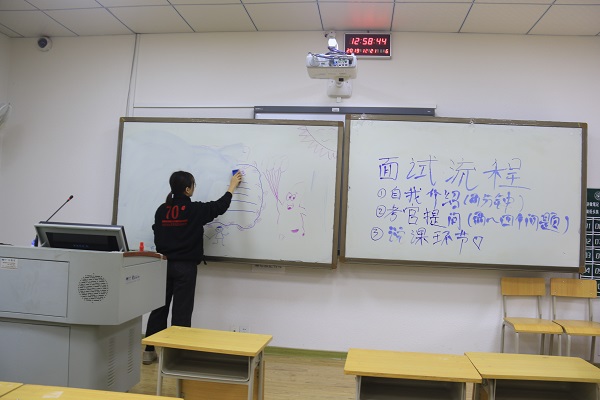 12:58:44
面试流程
①自我介绍(两分钟)
②考官提问(四个问题)
③课环节
70